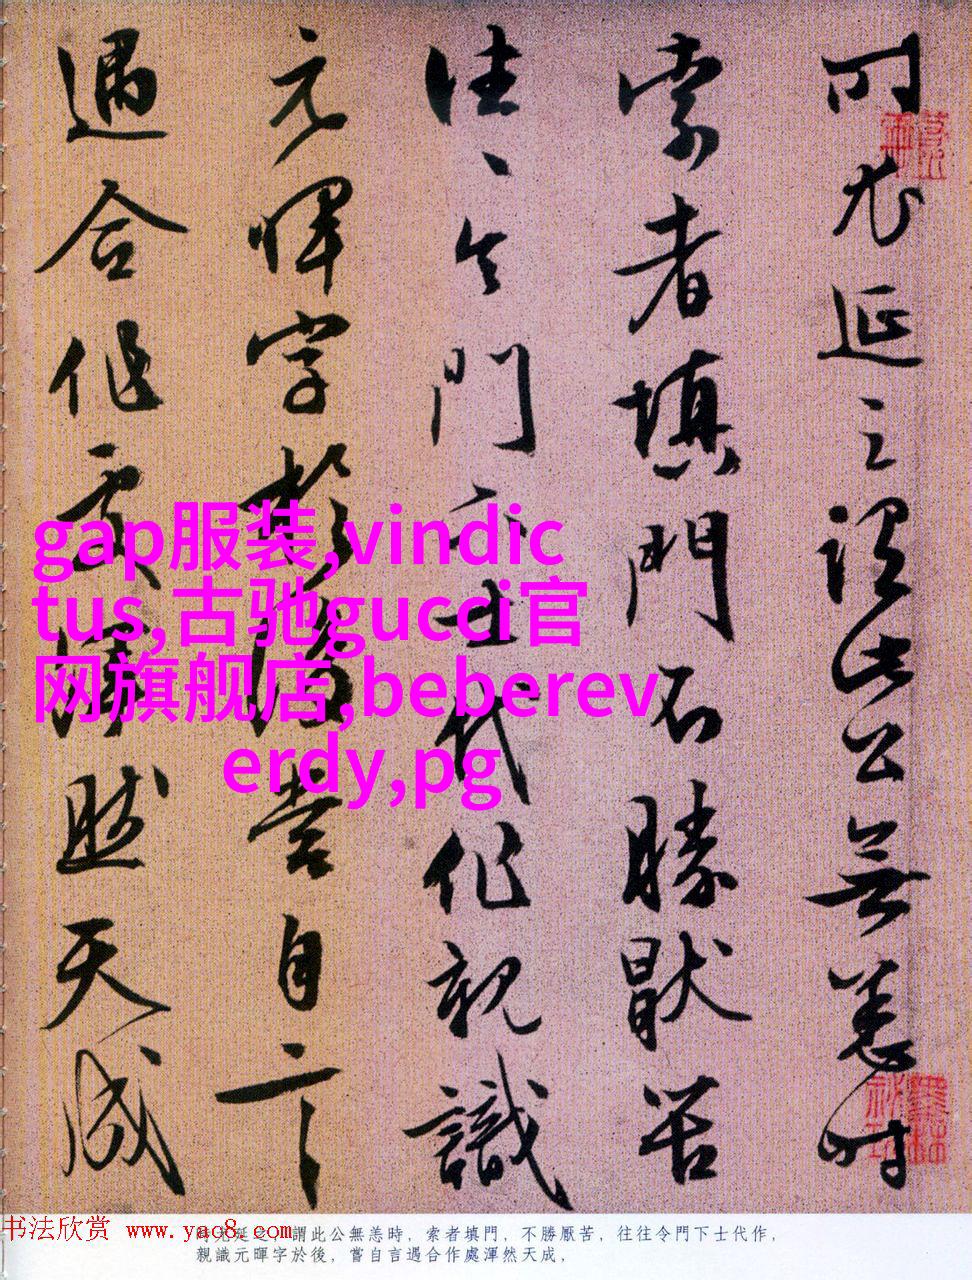 時尤延之謂此公無恙時
索者填門不勝厭苦
往々令門下士代作親識
元暉字於後嘗自言
遇合作處渾然天成
gap服装,vindic
tus,古驰gucci官
网旗舰店,beberev
erdy,pg
书法欣赏 www.yac8.com
時尤延之謂此公無恙時，索者填門，不勝厭苦，往往令門下士代作，
親識元暉字於後，嘗自言遇合作處渾然天成，